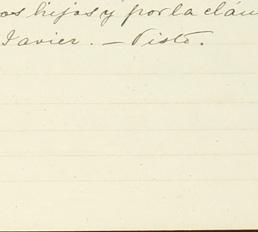 os hijos y por la cláu
Javier. — Visto.